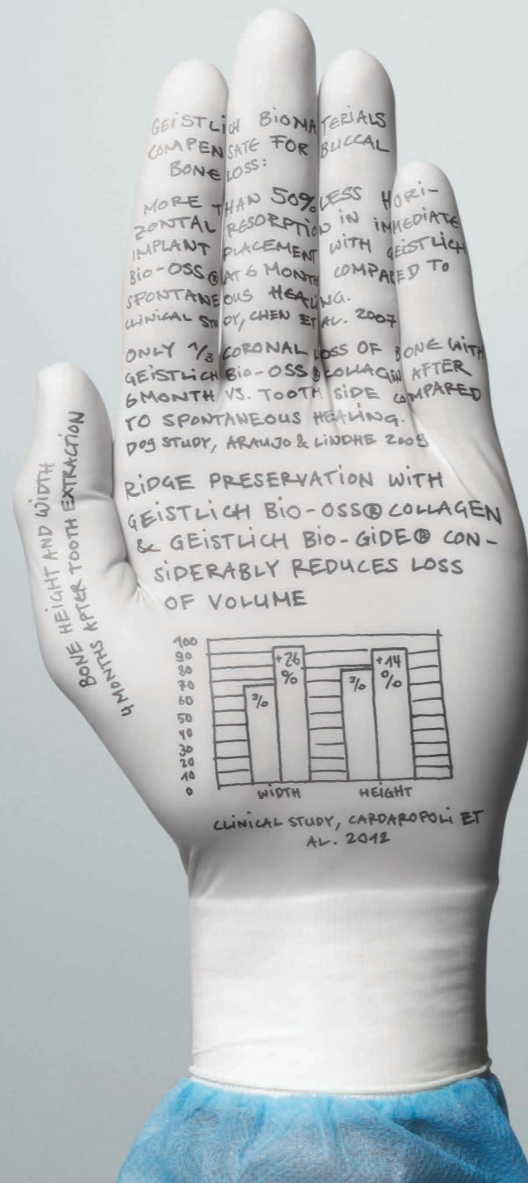 GEISTLICH BIOMATERIALS
COMPENSATE FOR BUCCAL
BONE LOSS:
MORE THAN 50% LESS HORI-
ZONTAL RESORPTION IN IMMEDIATE
IMPLANT PLACEMENT WITH GEISTLICH
BIO-OSS® AT 6 MONTH COMPARED TO
SPONTANEOUS HEALING.
CLINICAL STUDY, CHEN ET AL. 2007
ONLY 1/3 CORONAL LOSS OF BONE WITH
GEISTLICH BIO-OSS® COLLAGEN AFTER
6 MONTH VS. TOOTH SIDE COMPARED
TO SPONTANEOUS HEALING.
DOG STUDY, ARAUJO & LINDHE 2009
BONE HEIGHT AND WIDTH
4 MONTHS AFTER TOOTH EXTRACTION
RIDGE PRESERVATION WITH
GEISTLICH BIO-OSS® COLLAGEN
& GEISTLICH BIO-GIDE® CON-
SIDERABLY REDUCES LOSS
OF VOLUME
100
90
80
70
60
50
40
30
20
10
0
% +26 %
% +14 %
WIDTH HEIGHT
CLINICAL STUDY, CARDAROPOLI ET
AL. 2012